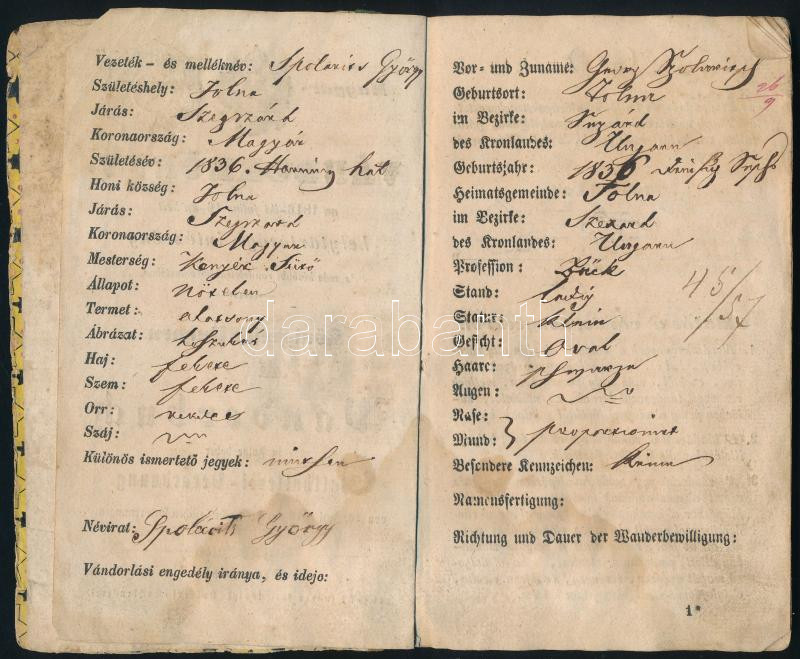 Vezeték- és melléknév: Spolarits György
Születéshely: Tolna
Járás: Szegszárd
Koronaország: Magyar
Születésév: 1836. Harmincz hat
Honi község: Tolna
Járás: Szegszard
Koronaország: Magyar
Mesterség: Kenyér Sütő
Állapot: nőtelen
Termet: alatsony
Ábrázat: hoszukas
Haj: fekete
Szem: fekete
Orr: rendes
Száj:
Különös ismertető jegyek: nintsen
Névirat: Spolarits György
Vándorlási engedély iránya, és idejo:
Vor- und Zuname: Georg
Geburtsort: Tolna
im Bezirke:
des Kronlandes: Ungarn
Geburtsjahr: 1836
Heimatsgemeinde: Tolna
im Bezirke: Szexard
des Kronlandes: Ungarn
Profession: Bäck
Stand: ledig
Statur: klein
Gesicht: Oval
Haare: schwarze
Augen:
Nase:
Mund: } proportionirt
Besondere Kennzeichen: Keine
Namensfertigung:
Richtung und Dauer der Wanderbewilligung:
26/9
45/57
1*
darabanth